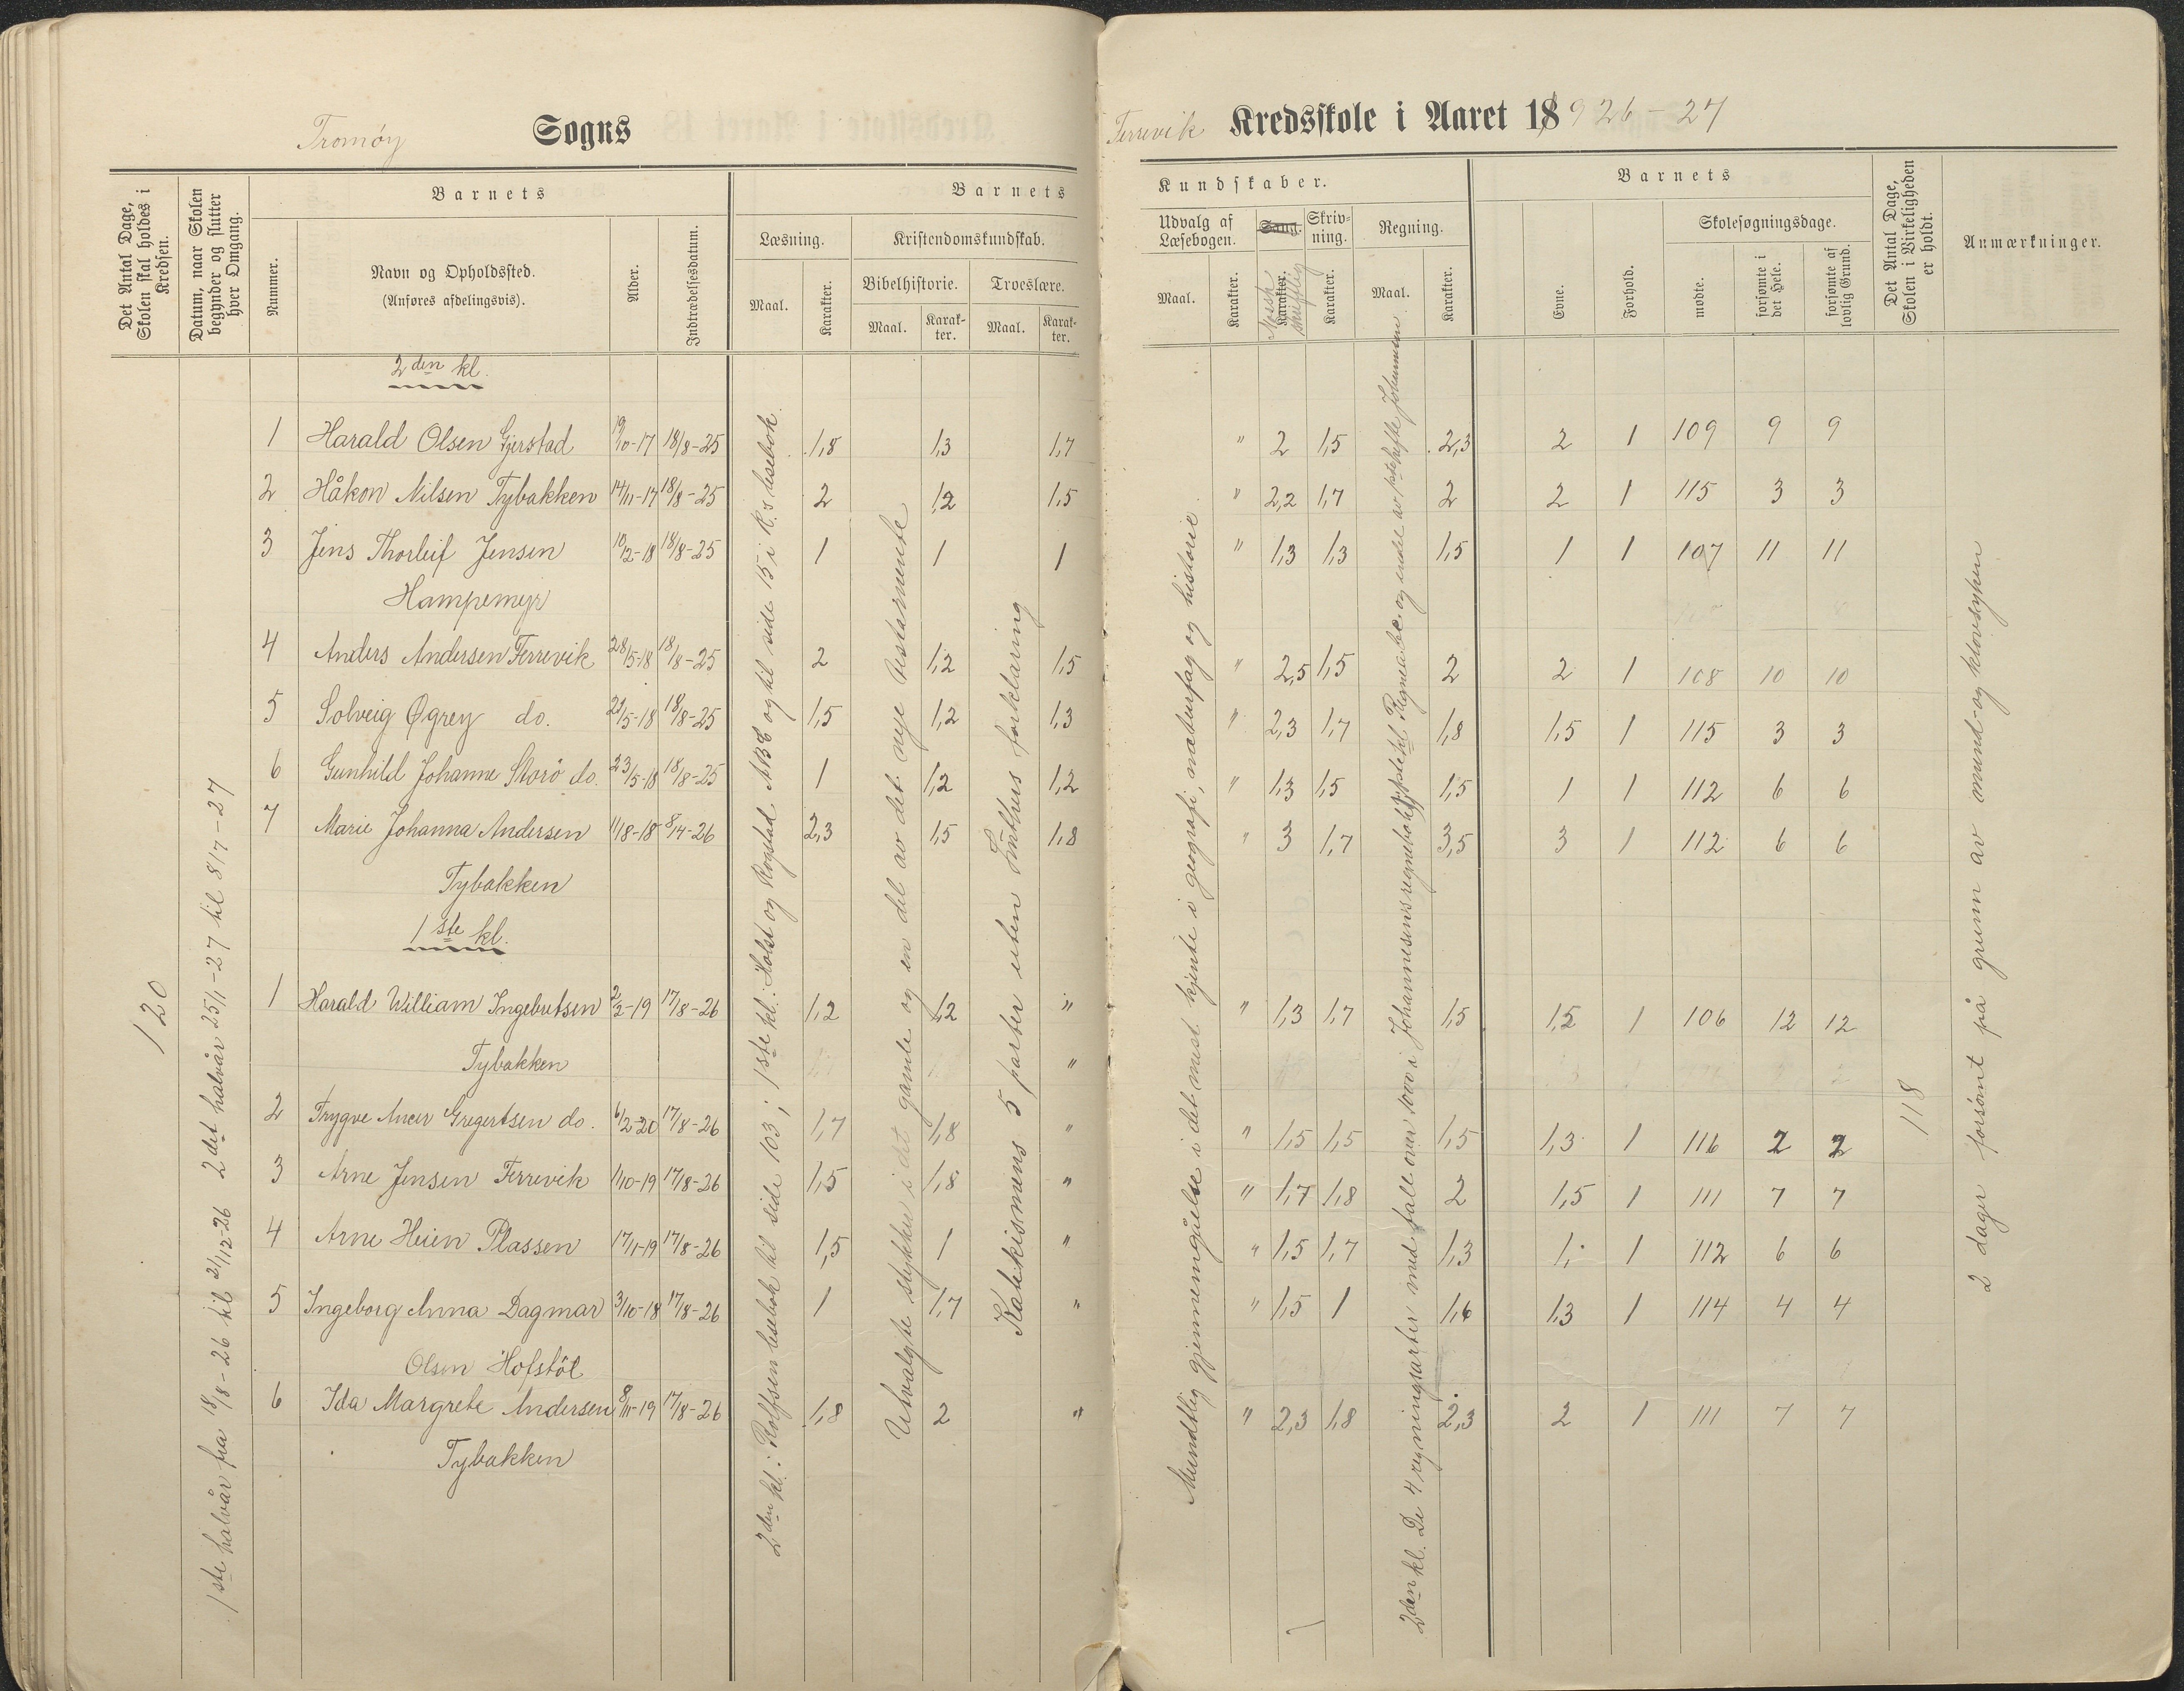 Tromøy Sogns
Det Antal Dage, Skolen skal holdes i Kredsen.
Datum, naar Skolen begynder og slutter hver Omgang.
Barnets
Nummer.
Navn og Opholdssted.
(Anføres afdelingsvis).
Alder.
Indtrædelsesdatum.
Barnets
Læsning.
Maal.
Karakter.
Kristendomskundskab.
Bibelhistorie.
Maal.
Karakter.
Troeslære.
Maal.
Karakter.
120
1ste halvår fra 18/8-26 til 21/12-26 2det halvår 25/1-27 til 8/7-27
2den kl.
1 Harald Olsen Gjerstad 19/10-17 18/8-25 1,8 1,3 1,7
2 Håkon Nilsen Tybakken 14/11-17 18/8-25 2 1,2 1,5
3 Jens Thorleif Jensen 10/2-18 18/8-25 1 1 1
Hampemyr
4 Anders Andersen Ferrevik 28/5-18 18/8-25 2 1,2 1,5
5 Solveig Øgrey do. 22/5-18 18/8-25 1,5 1,2 1,3
6 Gunhild Johanne Skorö do. 23/5-18 18/8-25 1 1,2 1,2
7 Marie Johanna Andersen 11/8-18 8/4-26 2,3 1,5 1,8
Tybakken
1ste kl.
1 Harald William Ingebretsen 2/2-19 17/8-26 1,2 1,2 "
Tybakken "
2 Trygve Gregertsen do. 6/2-20 17/8-26 1,7 1,8 "
3 Arne Jensen Ferrevik 1/10-19 17/8-26 1,5 1,8 "
4 Arne Heien Plassen 17/1-19 17/8-26 1,5 1 "
5 Ingeborg Anna Dagmar 3/10-18 17/8-26 1 1,7 "
Olsen Hofstöl
6 Ida Margrete Andersen 8/11-19 17/8-26 1,8 2 "
Tybakken
2den kl.: Rolfsen læsebok til side 103; 1ste kl.: Holst og Rogstad ABC og til side 15 i R.s læsebok.
Utvalgte stykker i det gamle og en del av det nye testamente
Katekismens 5 parter uten Luthers forklaring
Ferrevik Kredsskole i Aaret 1926-27
Kundskaber.
Udvalg af Læsebogen.
Maal.
Karakter.
Sang.
Norsk skriftlig
Karakter.
Skrivning.
Karakter.
Regning.
Maal.
Karakter.
Barnets
Evne.
Forhold.
Skolesøgningsdage.
mødte.
forsømte i det Hele.
forsømte af lovlig Grund.
Det Antal Dage, Skolen i Virkeligheden er holdt.
Anmærkninger.
" 2 1,5 2,3 2 1 109 9 9
" 2,2 1,7 2 2 1 115 3 3
" 1,3 1,3 1,5 1 1 107 11 11
" 2,5 1,5 2 2 1 108 10 10
" 2,3 1,7 1,8 1,5 1 115 3 3
" 1,3 1,5 1,5 1 1 112 6 6
" 3 1,7 3,5 3 1 112 6 6
" 1,3 1,7 1,5 1,5 1 106 12 12
" 1,5 1,5 1,5 1,3 1 116 2 2
" 1,7 1,8 2 1,5 1 111 7 7
" 1,5 1,7 1,3 1, 1 112 6 6
" 1,5 1 1,6 1,3 1 114 4 4
" 2,3 1,8 2,3 2 1 111 7 7
Mundtlig gjennemgåelse i det mest kjente i geografi, naturfag og historie
2den kl. De 4 regningsarter med talle over 1000 i Johannesens regnebok
118
2 dager forsømt på grunn av mund- og klovsyken